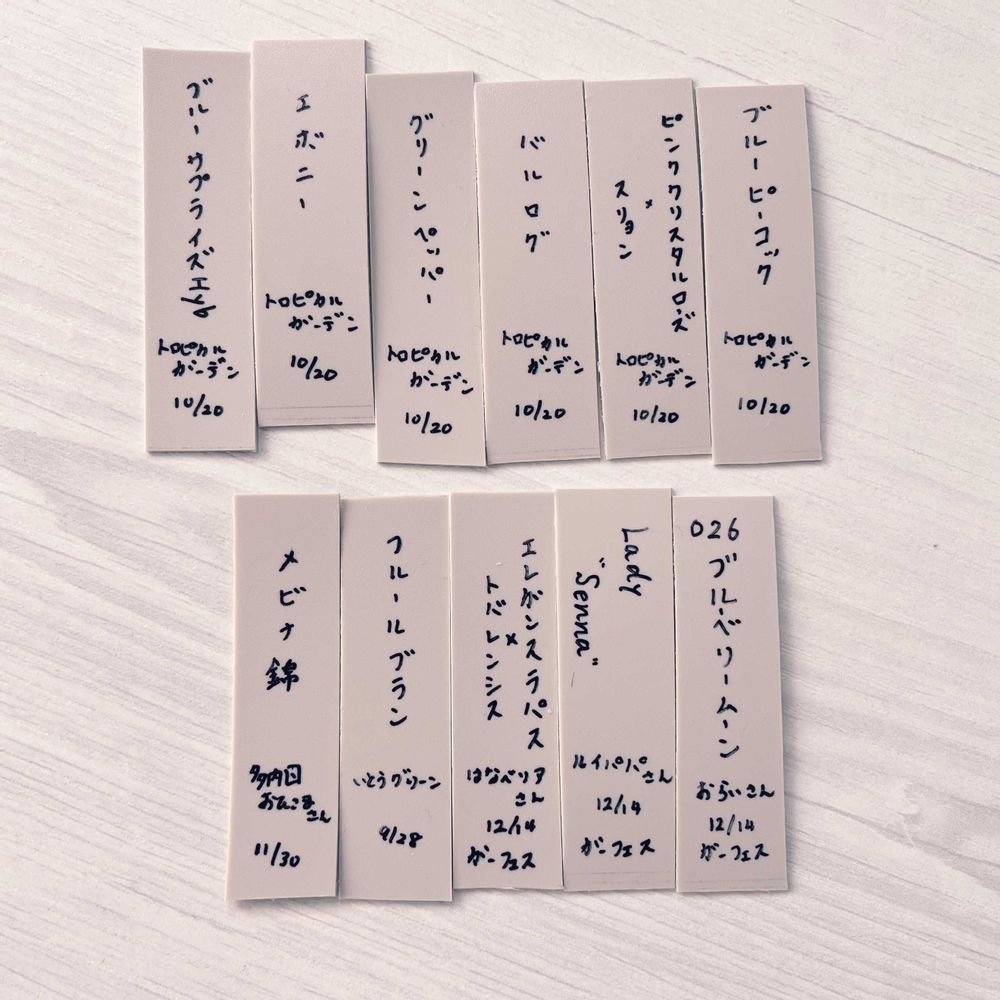 ブルーサプライズエyb
トロピカル
ガーデン
10/20
エボニー
トロピカル
ガーデン
10/20
グリーンペッパー
トロピカル
ガーデン
10/20
バルログ
トロピカル
ガーデン
10/20
ピンククリスタルローズ
×
スリョン
トロピカル
ガーデン
10/20
ブルーピーコック
トロピカル
ガーデン
10/20
メビナ錦
多肉日
おひこまさん
11/30
フルールブラン
いとうグリーン
9/28
エレガンスラパス
×
トバレンシス
はなベリアさん
12/14
ガーフェス
Lady
"Senna"
ルイパパさん
12/14
ガーフェス
026
ブルーベリームーン
おらいさん
12/14
ガーフェス